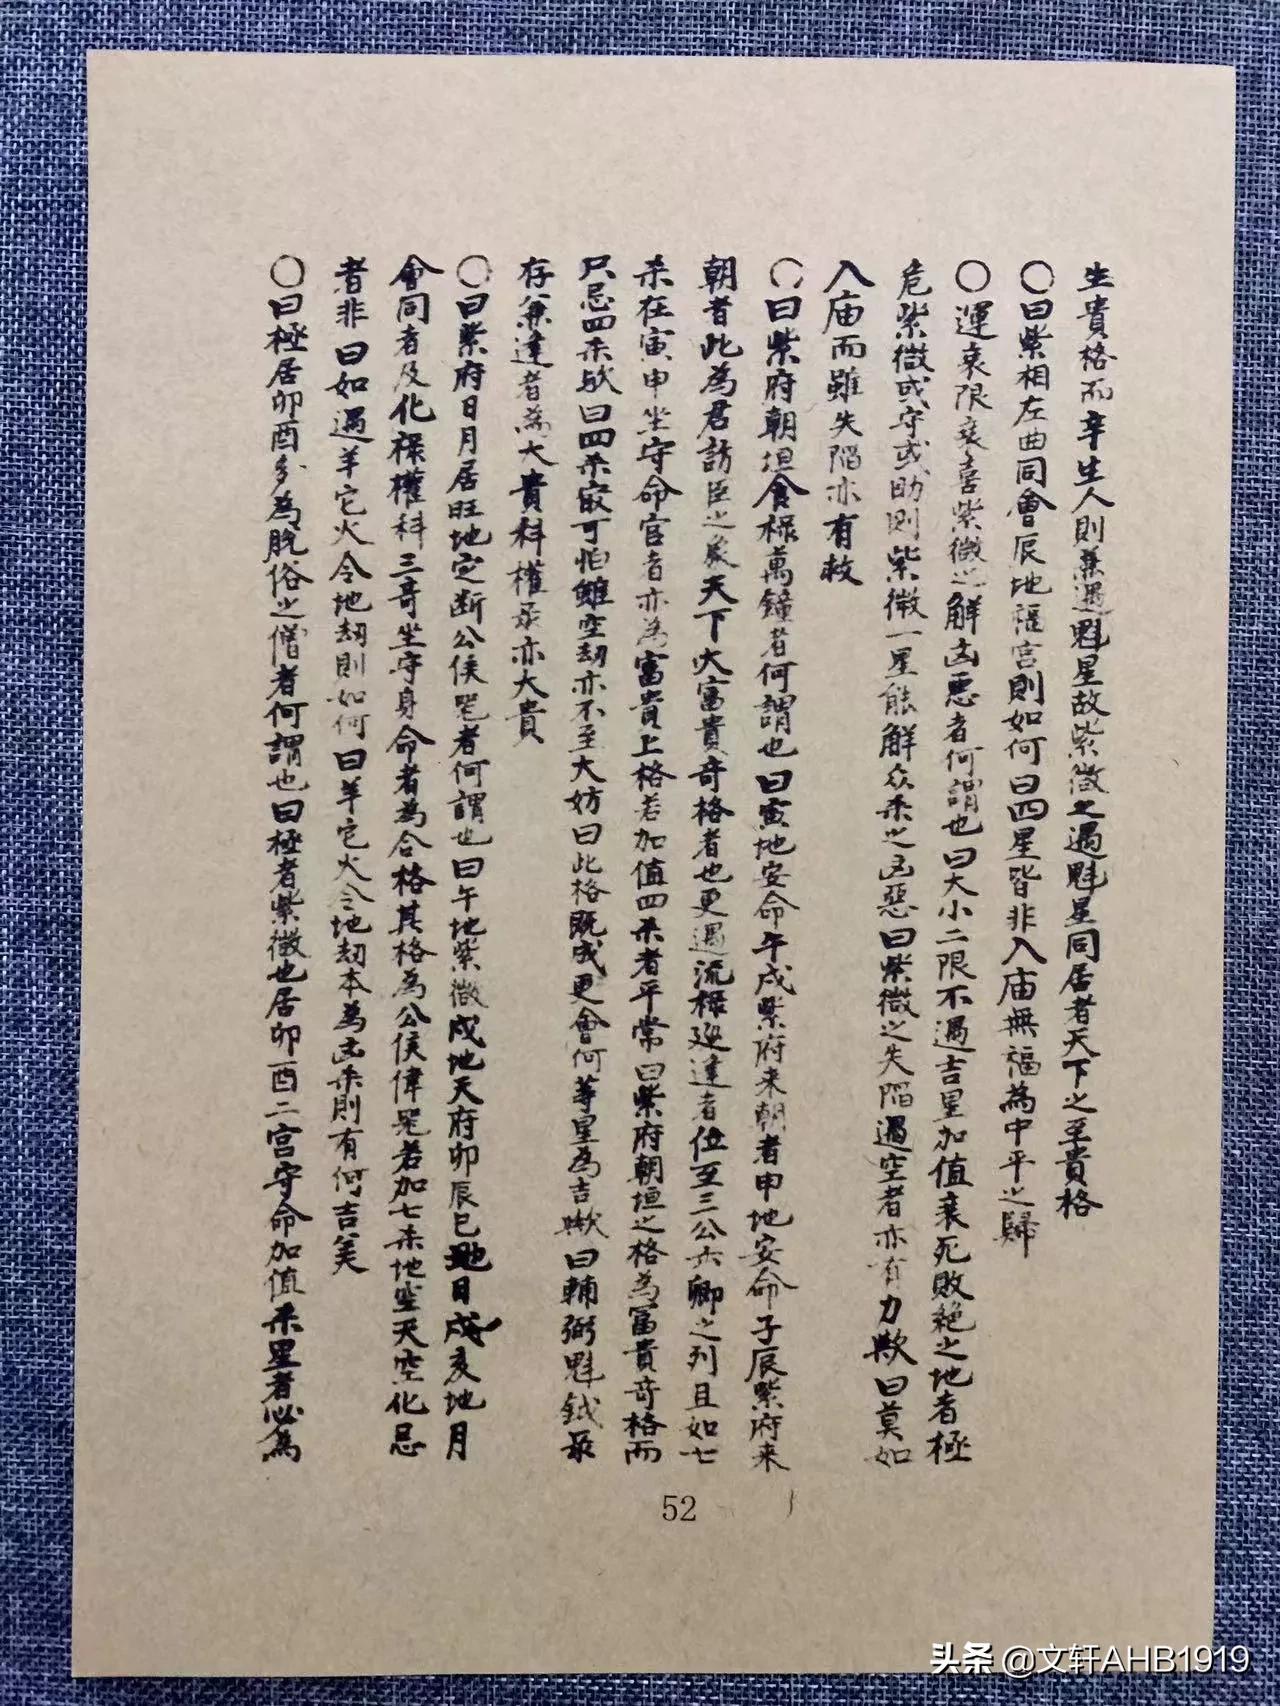 生貴格而辛生人則兼遇魁星故紫微之遇魁星同居者天下之至貴格
〇曰紫相左曲同會辰地福宫則如何曰四星皆非入庙無福為中平之歸
〇運衰限衰喜紫微之解凶悪者何謂也曰大小二限不遇吉星加值衰死敗絶之地者極
危紫微或守或助則紫微一星能解众杀之凶惡曰紫微之失陷遇空者亦有力欺曰莫如
入庙而雖失陷亦有救
〇曰紫府朝垣食禄萬鐘者何謂也曰寅地安命午戌紫府来朝者申地安命子辰紫府来
朝者此為君訪臣之象天下大富貴奇格者也更遇流禄巡逢者位至三公六卿之列且如七
杀在寅申坐守命宫者亦為富貴上格若加值四杀者平常曰紫府朝垣之格為富貴奇格而
只忌四杀欤曰四杀寂可怕雖空劫亦不至大妨曰此格既成更會何等星為吉欺曰輔弼魁鉞彔
存兼逢者為大貴科權彔亦大貴
〇曰紫府日月居旺地定断公侯噐者何謂也曰午地紫微戌地天府卯辰巳地日戌亥地月
會同者及化禄權科三奇坐守身命者為合格其格為公侯偉噐若加七杀地空天空化忌
者非曰如遇羊它火令地劫則如何曰羊它火令地劫本為凶杀則有何吉美
〇曰極居卯酉多為脫俗之僧者何謂也曰極者紫微也居卯酉二宫守命加值杀星者必為
52
头条 @文轩AHB1919